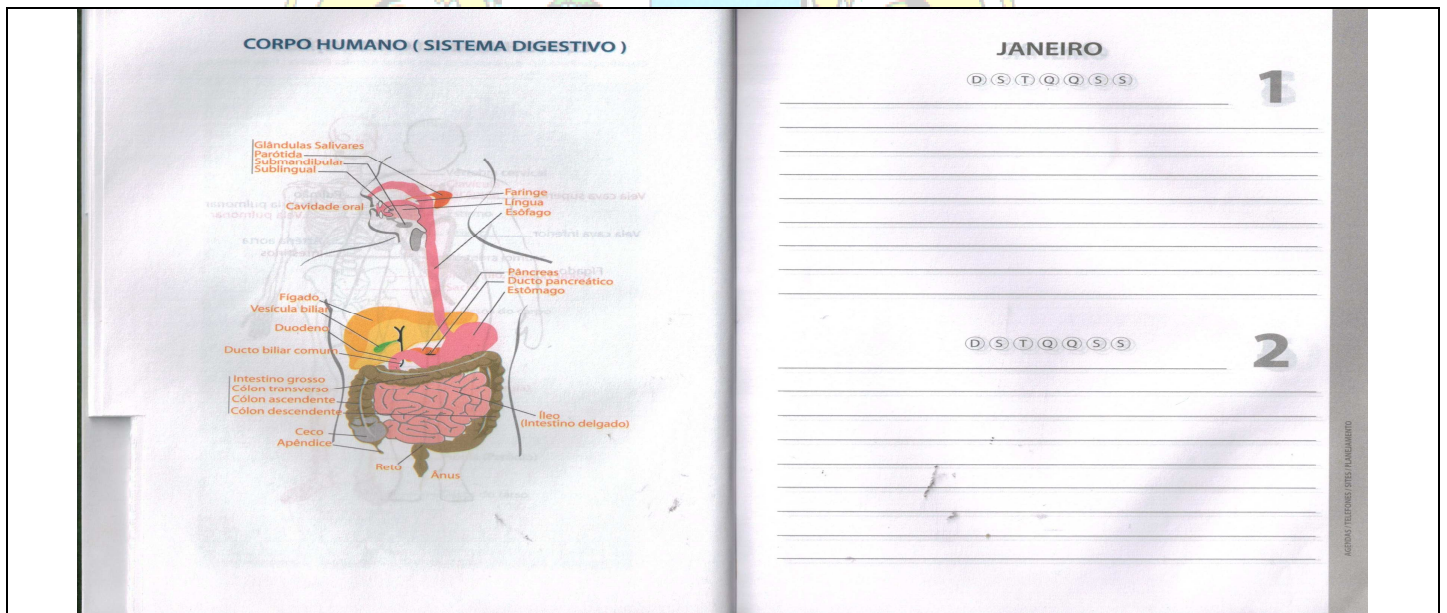 CORPO HUMANO ( SISTEMA DIGESTIVO )
Glândulas Salivares
Parótida
Submandibular
Sublingual
Cavidade oral
Faringe
Língua
Esôfago
Pâncreas
Ducto pancreático
Estômago
Fígado
Vesícula biliar
Duodeno
Ducto biliar comum
Intestino grosso
Cólon transverso
Cólon ascendente
Cólon descendente
Ceco
Apêndice
Reto
Ânus
Íleo
(Intestino delgado)
JANEIRO
D S T Q Q S S
1
D S T Q Q S S
2
AGENDAS / TELEFONES / SITES / PLANEJAMENTO